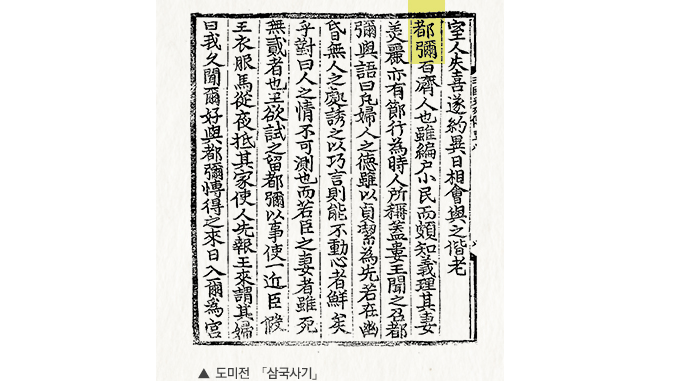 室人失喜遂約異日相會與之偕老
都彌百濟人也雖編戶小民而頗知義理其妻
羙麗亦有節行為時人所稱蓋婁王聞之召都
彌與語曰凡婦人之德雖以貞絜為先若在幽
昏無人之處誘之以巧言則能不動心者鮮矣
乎對曰人之情不可測也而若臣之妻者雖死
無貳者也王欲試之留都彌以事使一近臣假
王衣服馬從夜抵其家使人先報王來謂其婦
曰我久聞爾好與都彌博得之來日入爾爲宮
▲ 도미전 「삼국사기」